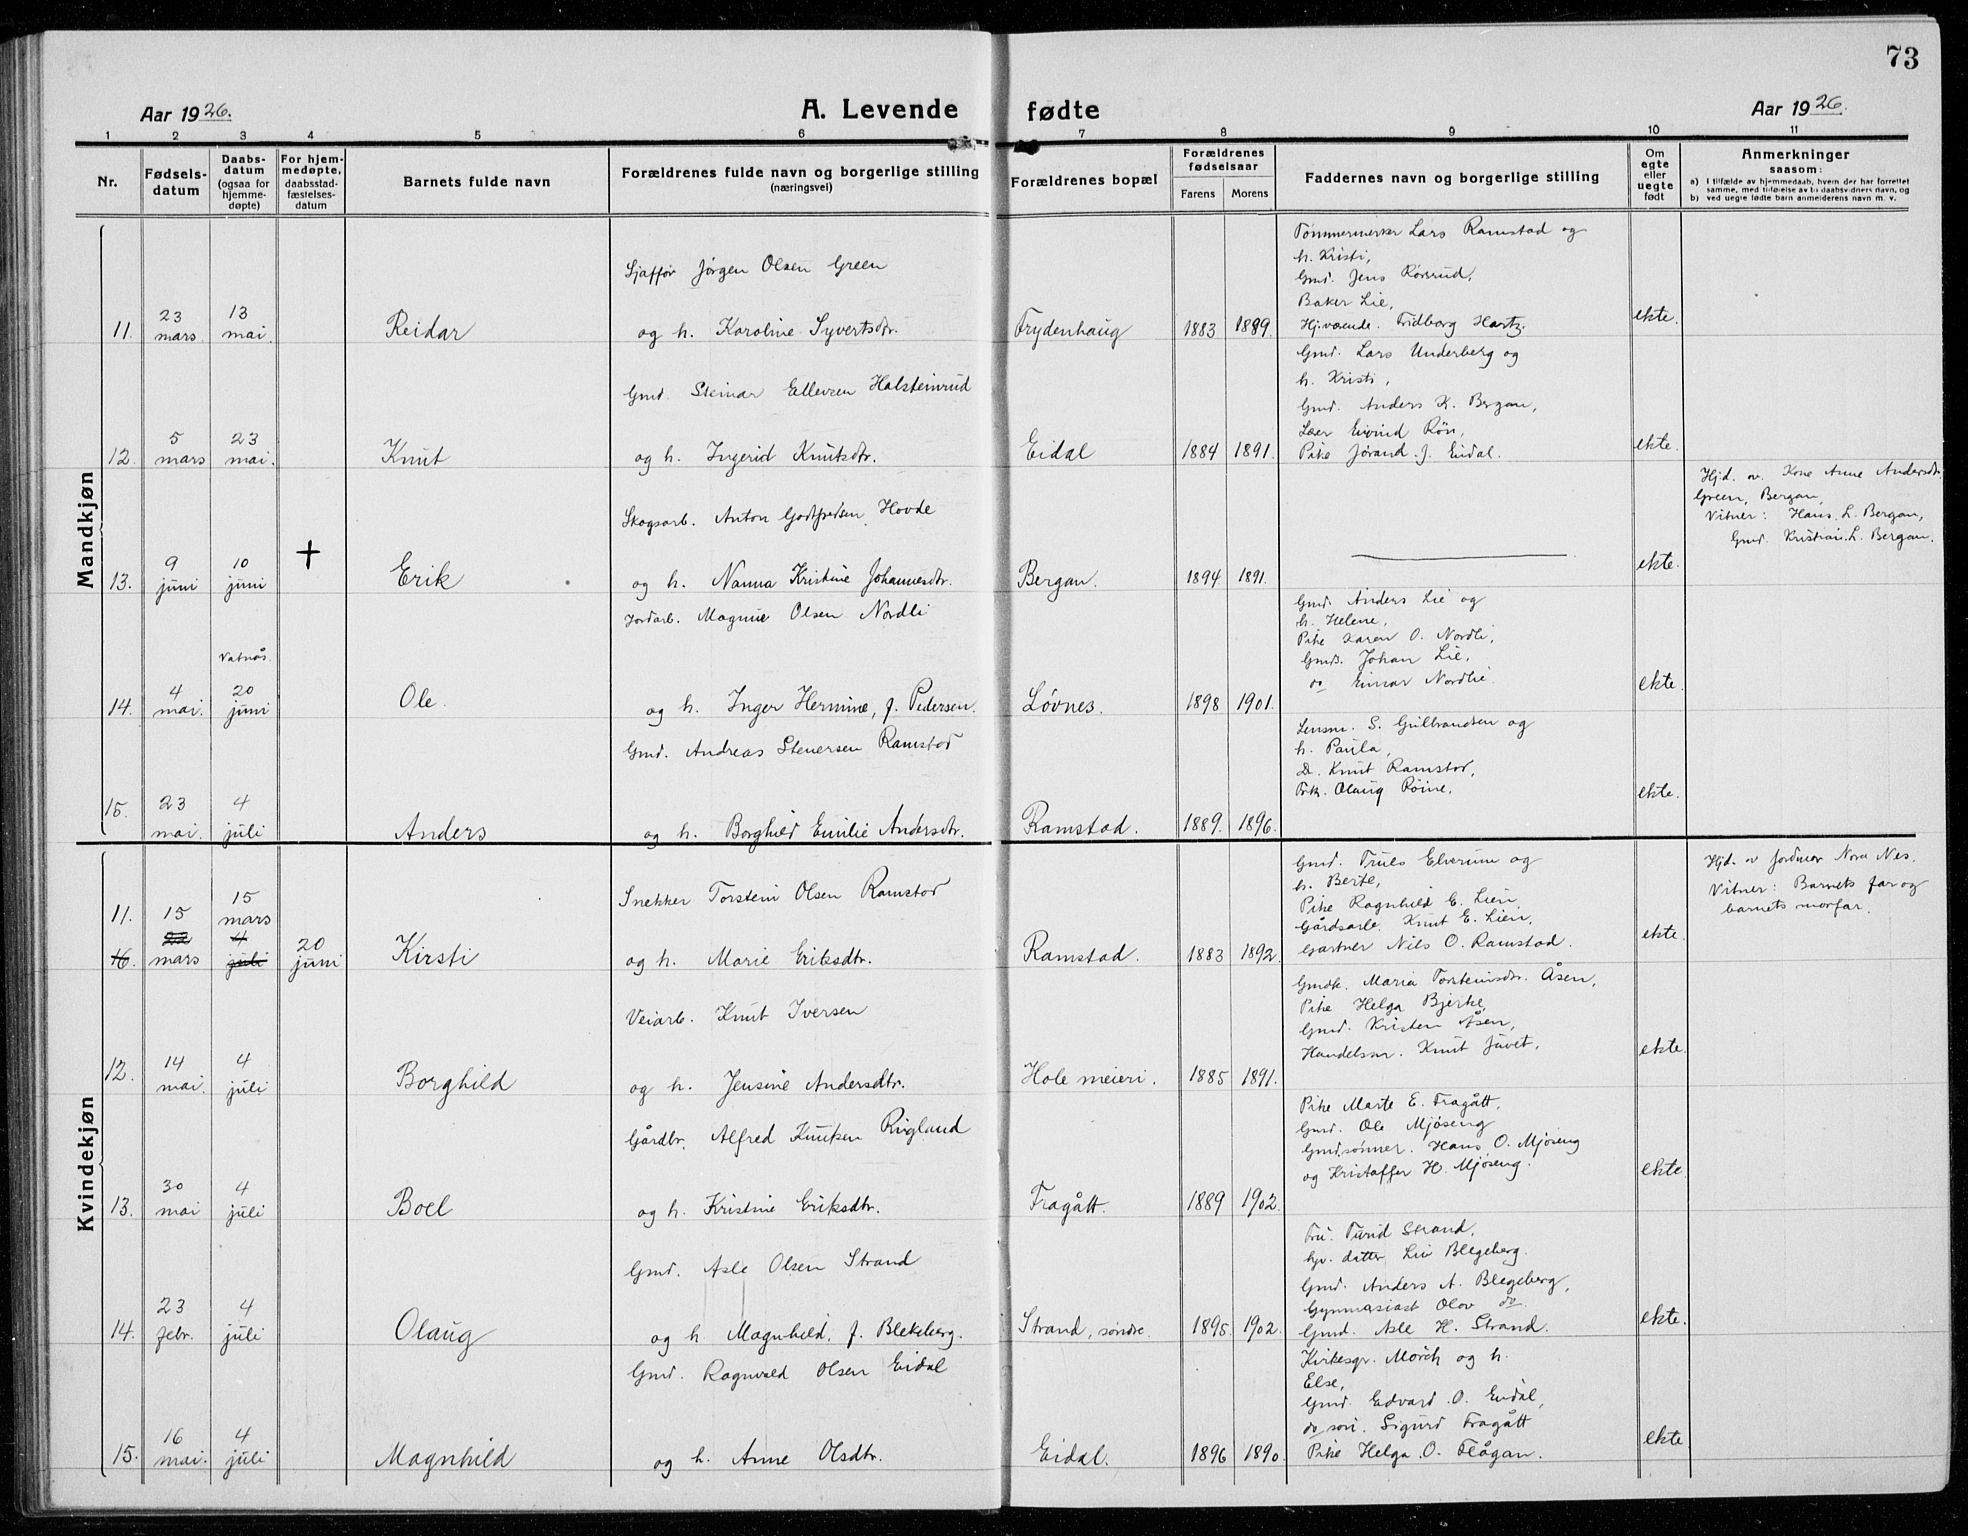 73
Aar 1926.
A. Levende fødte
Aar 1926.
1 2 3 4 5 6 7 8 9 10 11
Nr.
Fødsels-
datum
Daabs-
datum
(ogsaa for
hjemme-
døpte)
For hjem-
medøpte,
daabsstad-
fæstelses-
datum
Barnets fulde navn
Forældrenes fulde navn og borgerlige stilling
(næringsvei)
Forældrenes bopæl
Forældrenes
fødselsaar
Farens Morens
Faddernes navn og borgerlige stilling
Om
egte
eller
uegte
født
Anmerkninger
saasom:
a) I tilfælde av hjemmedaab, hvem der har forrettet
samme, med tilføielse av to daabsvidners navn, og
b) ved uegte fødte barn anmelderens navn m. v.
Mandkjøn
11.
23
mars
13
mai.
Reidar
Sjaffør Jørgen Olsen Green
og h. Karoline Syvertsdtr.
Frydenhaug
1883 1889.
Tømmermerker Lars Ramstad og
h. Kristi,
Gmd. Jens Rørsrud,
Baker Lie,
Hj.værende. Fridborg Hartz.
ekte.
12.
5
mars
23
mai.
Knut
Gmd. Steinar Ellevsen Halsteinrud
og h. Ingerid Knutsdtr.
Eidal
1884 1891.
Gmd. Lars Underberg og
h. Kristi,
Gmd. Anders K. Bergan,
Lær Eivind Røn,
Pike Jørand J. Eidal.
ekte.
13.
9
juni
10
juni
+
Erik
Skogsarb. Anton Godtfredsen Hovde
og h. Nanna Kristine Johannesdtr.
Bergan.
1894. 1891.
ekte.
Hjd. av. Kone Anne Andersdtr.
Green, Bergan,
Vitner: Hans. L. Bergan,
Gmd. Kristian. L. Bergan.
14.
4
mai.
Vatnås.
20
juni
Ole.
Jordarb. Magnus Olsen Nordli
og h. Inger Hermine, f. Pedersen.
Løvnes.
1898 1901.
Gmd. Anders Lie og
h. Helene,
Pike Karen O. Nordli,
Gmds. Johan Lie,
do Einar Nordlie.
ekte.
15.
23
mai.
4
juli
Anders
Gmd. Andreas Stenersen Ramstad
og h. Borghild Emilie Andersdtr.
Ramstad.
1889. 1896.
Lensm. S. Gulbrandsen og
h. Paula,
Knut Ramstad,
Frk. Olaug Røine,
ekte.
Kvindekjøn
11.
16.
15
22
mars
15
mars
4
juli
20
juni
Kirsti
Snekker Torstein Olsen Ramstad
og h. Marie Eriksdtr.
Ramstad.
1883 1892.
Gmd. Truls Elverum og
h. Berte,
Pike Ragnhild E. Lien,
Gårdsarb. Knut E. Lien,
Gartner Nils O. Ramstad.
ekte.
Hjd. av Jordmor Nora Nes.
Vitner: Barnets far og
barnets morfar.
12.
14
mai.
4
juli
Borghild
Veiarb. Knut Iversen
og h. Jensine Andersdtr.
Hole meieri.
1885 1891.
Gmdk. Maria Torsteinsdtr. Åsen,
Pike Helga Bjerke,
Gmd. Kristen Åsen,
Handelsm. Knut Juvet,
ekte.
13.
30
mai
4
juli
Boel
Gårdbr. Alfred Knutsen Ringland
og h. Kristine Eriksdtr.
Fragått.
1889 1902.
Pike Marte E. Fragått,
Gmd. Ole Mjøseng
Gmd.sønner. Hans O. Mjøseng
og Kristaffer H. Mjøseng.
ekte
14.
23
febr.
4
juli
Olaug
Gmd. Asle Olsen Strand
og h. Magnhild, f. Blekeberg.
Strand, søndre.
1895. 1902.
Fru. Turid Strand,
hjv. datter Liv Blegeberg.
Gmd. Anders A. Blegeberg,
Gymnasiast Olov do
Gmd. Asle H. Strand.
ekte.
15.
16
mai.
4
juli
Magnhild
Gmd. Ragnvald Olsen Eidal
og h. Anne Olsdtr.
Eidal.
1896 1890.
Kirkesgr. Mørch og h.
Else,
Gmd. Edvard O. Eidal,
do søn. Sigurd Fragått
Pike Helga O. Flågan.
ekte